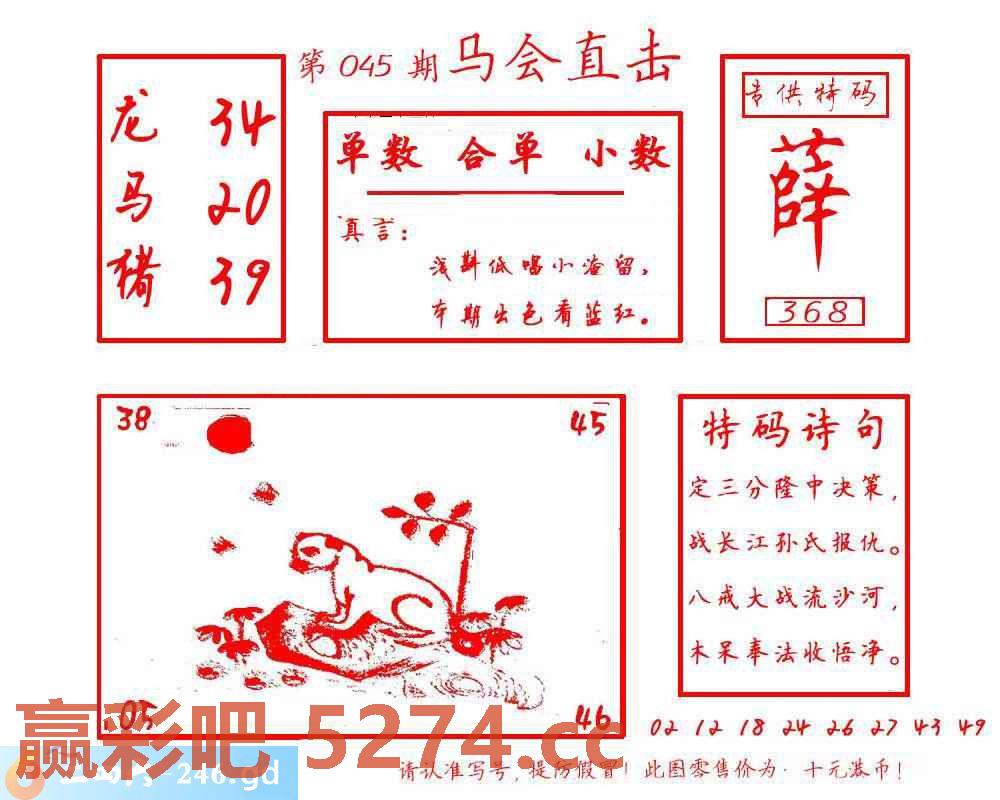 第 045 期 马会直击
龙 34
马 20
猪 39
单数 合单 小数
真言：
浅斟低唱小淹留，
本期出色看蓝红。
专供特码
薛
368
38
45
05
46
特码诗句
定三分隆中决策，
战长江孙氏报仇。
八戒大战流沙河，
木呆奉法收悟净。
02 12 18 24 26 27 43 49
赢彩吧 5274.cc
-246.gd
请认准写号，提防假冒！此图零售价为：十元港币！